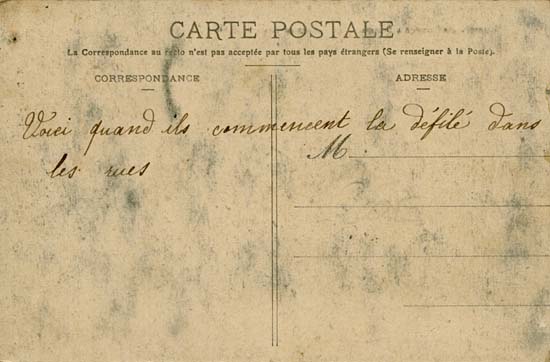 CARTE POSTALE
La Correspondance au recto n'est pas acceptée par tous les pays étrangers (Se renseigner à la Poste).
CORRESPONDANCE
ADRESSE
Voici quand ils commencent la défilé dans
les rues
M